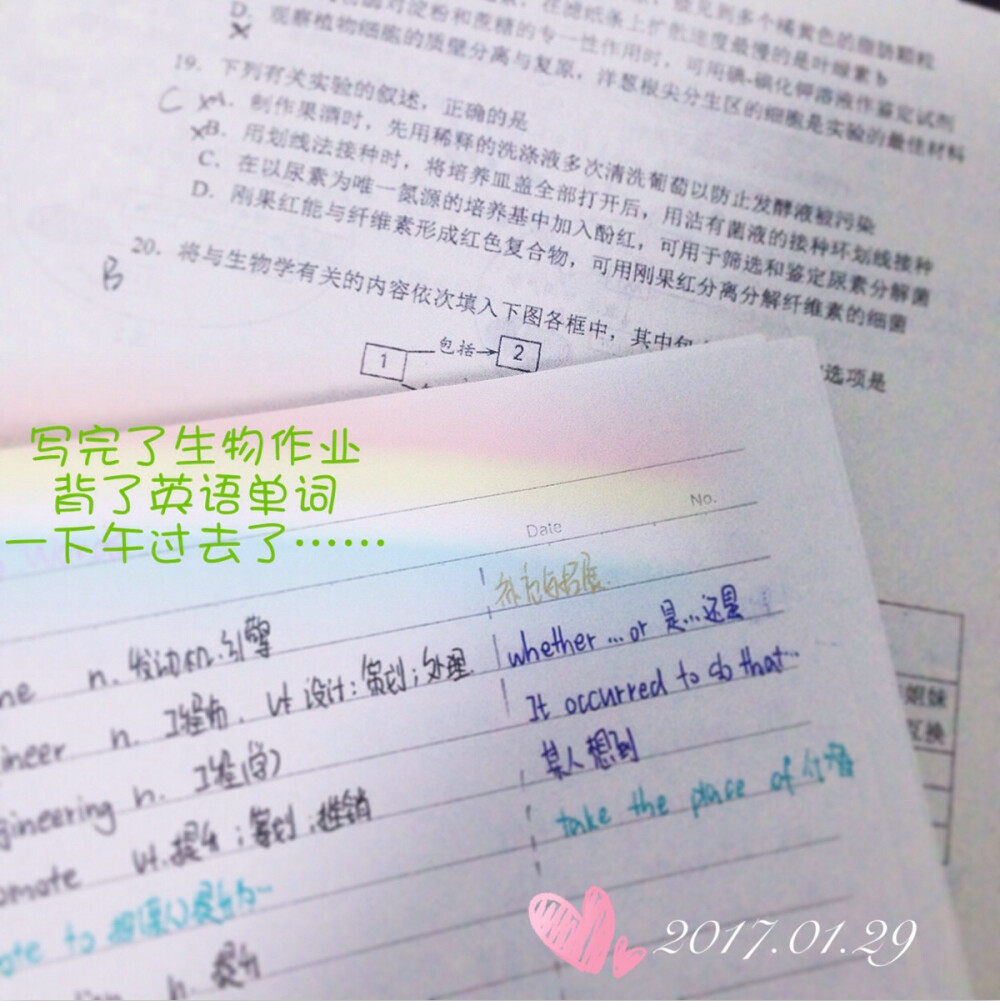 能见到多个橘黄色的脂肪颗粒
在滤纸条上扩散速度最慢的是叶绿素b
对淀粉和蔗糖的专一性作用时，可用碘-碘化钾溶液作鉴定试剂
D. 观察植物细胞的质壁分离与复原，洋葱根尖分生区的细胞是实验的最佳材料
19. 下列有关实验的叙述，正确的是
C
A. 制作果酒时，先用稀释的洗涤液多次清洗葡萄以防止发酵液被污染
B. 用划线法接种时，将培养皿盖全部打开后，用沾有菌液的接种环划线接种
C. 在以尿素为唯一氮源的培养基中加入酚红，可用于筛选和鉴定尿素分解菌
D. 刚果红能与纤维素形成红色复合物，可用刚果红分离分解纤维素的细菌
B
20. 将与生物学有关的内容依次填入下图各框中，其中包
选项是
1 包括 2
写完了生物作业
背了英语单词
一下午过去了……
Date No.
补充与拓展
ne n. 发动机；引擎
whether … or 是…还是
ineer n. 工程师. vt 设计；策划；处理
It occurred to sb that…
gineering n. 工程(学)
某人想到
omote vt. 提升；筹划；推销
take the place of 代替
ote to
n. 提升
姐妹
互换
2017.01.29